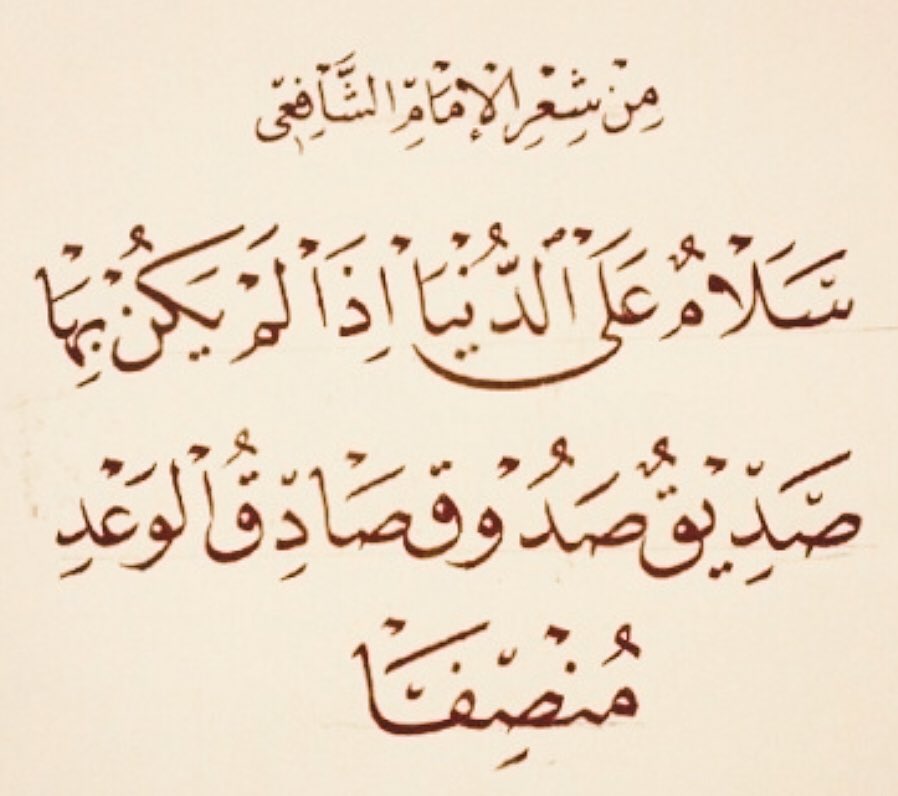 مِنْ شِعْرِ الْإِمَامِ الشَّافِعِي
سَلَامٌ عَلَى ٱلدُّنْيَا إِذَا لَمْ يَكُنْ بِهَا
صَدِيْقٌ صَدُوْق صَادِقُ الْوَعْدِ
مُنْصِفَا